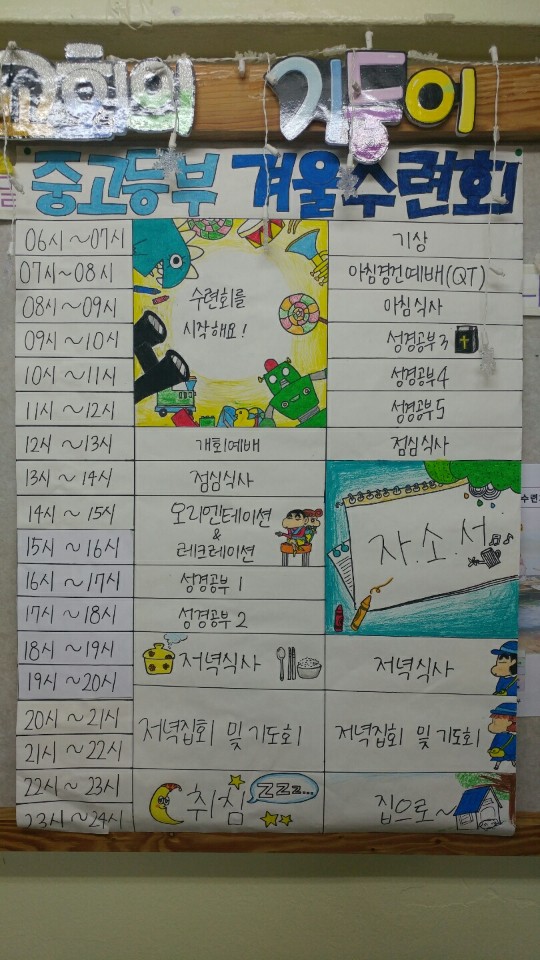 기둥이
중고등부 겨울수련회
06시 ~ 07시
기상
07시 ~ 08시
수련회를
시작해요!
아침경건예배(QT)
08시 ~ 09시
아침식사
09시 ~ 10시
성경공부3
10시 ~ 11시
성경공부4
11시 ~ 12시
성경공부5
12시 ~ 13시
개회예배
점심식사
13시 ~ 14시
점심식사
14시 ~ 15시
오리엔테이션
&
레크레이션
자.소.서
15시 ~ 16시
16시 ~ 17시
성경공부 1
17시 ~ 18시
성경공부 2
18시 ~ 19시
저녁식사
저녁식사
19시 ~ 20시
20시 ~ 21시
저녁집회 및 기도회
저녁집회 및 기도회
21시 ~ 22시
22시 ~ 23시
취침
ZZZ...
집으로~
23시 ~ 24시